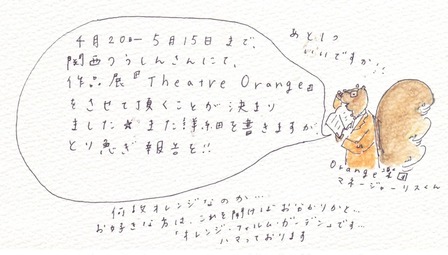 4月20ー5月15日まで、
関西つうしんさんにて、
作品展『Theatre Orange』
をさせて頂くことが決まり
ました☆また詳細を書きますが、
とり急ぎ報告を!!
あと1つ
いいですか!!
Orange楽団
マネージャーリスくん
何故オレンジなのか…
お好きな方は、これを聞けばおわかりかと…
「オレンジ・フィルム・ガーデン」です…
ハマっております